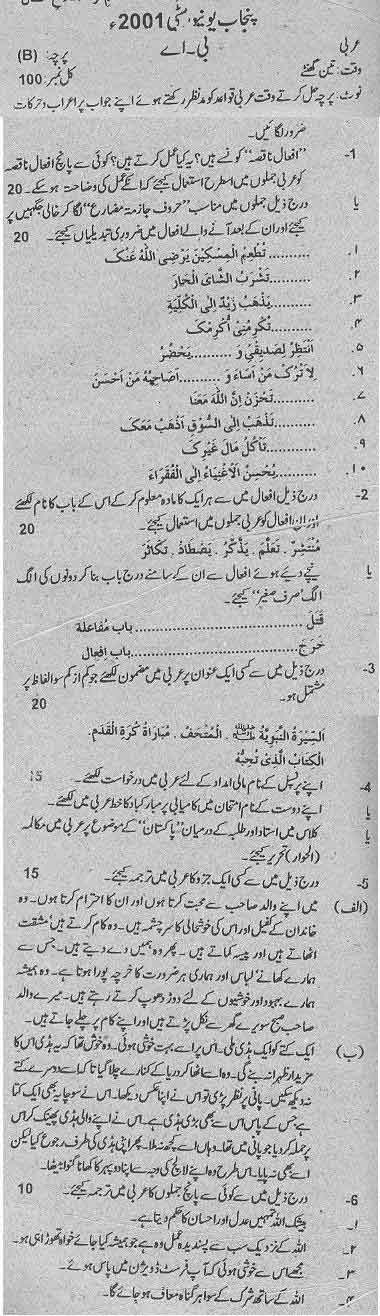 پنجاب یونیورسٹی 2001ء
عربی بی۔اے پرچہ: (B)
وقت: تین گھنٹے کل نمبر: 100
نوٹ: پرچہ حل کرتے وقت عربی قواعد کو مدنظر رکھتے ہوئے اپنے جواب پر اعراب و حرکات
ضرور لگائیں۔
1- "افعال ناقصہ" کونسے ہیں؟ یہ کیا عمل کرتے ہیں؟ کوئی سے پانچ افعال ناقصہ
کو عربی جملوں میں اسطرح استعمال کیجئے کہ انکے عمل کی وضاحت ہو سکے۔ 20
یا درج ذیل جملوں میں مناسب "حروف جازمہ مضارع" لگا کر خالی جگہیں پر
کیجئے اور ان کے بعد آنے والے افعال میں ضروری تبدیلیاں کیجئے۔ 20
۱۔ ..........تُطْعِمُ الْمِسْكِيْنَ يَرْضَى اللّٰهُ عَنْكَ
۲۔ ..........تَشْرَبُ الشَّايَ الْحَارَّ
۳۔ ..........يَذْهَبُ زَيْدٌ اِلَى الْكُلِّيَةِ
۴۔ ..........تُكْرِمُنِيْ أُكْرِمُكَ
۵۔ اَنْتَظِرُ لِصَدِيْقِيْ وَ ..........يَحْضُرُ
۶۔ لِأَتْرُكَ مَنْ اَسَاءَ وَ ..........اُصَاحِبُهُ مَنْ اَحْسَنَ
۷۔ ..........تَحْزَنُ اِنَّ اللّٰهَ مَعَنَا
۸۔ ..........تَذْهَبُ اِلَى السُّوْقِ اَذْهَبُ مَعَكَ
۹۔ ..........تَأْكُلُ مَالَ غَيْرِكَ
۱۰۔ ..........يُحْسِنُ الْأَغْنِيَاءُ اِلَى الْفُقَرَاءِ
2- درج ذیل افعال میں سے ہر ایک کا مادہ معلوم کر کے اس کے باب کا نام لکھئے
اور ان افعال کو عربی جملوں میں استعمال کیجئے۔ 20
مُنْتَشِرٌ ۔ تَعَلَّمَ ۔ يَذَّكَّرُ ۔ يَصْطَادُ ۔ تَكَاثَرَ
یا نیچے دیے ہوئے افعال سے ان کے سامنے درج باب بنا کر دونوں کی الگ
الگ "صرف صغیر" کیجئے۔
قَتَلَ .......... باب مُفاعلة
خَرَجَ .......... باب اِفعال
3- درج ذیل میں سے کسی ایک عنوان پر عربی میں مضمون لکھئے جو کم از کم سو الفاظ پر
مشتمل ہو۔ 20
اَلسِّيْرَةُ النَّبَوِيَّةُ ﷺ ۔ اَلْمُتْحَفُ ۔ مُبَارَاةُ كُرَةِ الْقَدَمِ ۔
اَلْكِتَابُ الَّذِيْ تُحِبُّهُ
4- اپنے پرنسپل کے نام مالی امداد کے لئے عربی میں درخواست لکھئے۔ 15
یا اپنے دوست کے نام امتحان میں کامیابی پر مبارکباد کا خط عربی میں لکھئے۔
یا کلاس میں استاد اور طلبہ کے درمیان "پاکستان" کے موضوع پر عربی میں مکالمہ
(الحوار) تحریر کیجئے۔
5- درج ذیل میں سے کسی ایک جزو کا عربی میں ترجمہ کیجئے۔ 15
(الف) میں اپنے والد صاحب سے محبت کرتا ہوں اور ان کا احترام کرتا ہوں۔ وہ
خاندان کے کفیل اور اس کی خوشحالی کا سرچشمہ ہیں۔ وہ کام کرتے ہیں، مشقت
اٹھاتے ہیں اور پیسہ کماتے ہیں۔ پھر وہ ہمیں دے دیتے ہیں۔ جس سے
ہمارے کھانے، لباس اور ہماری ہر ضرورت کا خرچہ پورا ہوتا ہے۔ وہ ہمیشہ
ہمارے بہبود اور خوشیوں کے لئے دوڑ دھوپ کرتے رہتے ہیں۔ میرے والد
صاحب صبح سویرے گھر سے نکل پڑتے ہیں اور اپنے کام پر چلے جاتے ہیں۔
(ب) ایک کتے کو ایک ہڈی ملی۔ اس پر اسے بہت خوشی ہوئی۔ وہ خوش تھا کہ یہ ہڈی اس کا
مزیدار ظہرانہ بنے گی۔ وہ اسے اٹھا کر دریا کے کنارے چلا گیا تاکہ اسے دوسرے کتے
نہ دیکھ سکیں۔ پانی پر نظر پڑی تو اس نے اپنا عکس دیکھا۔ اس نے سوچا یہ بھی ایک کتا
ہے جس کے پاس اس سے بھی بڑی ہڈی ہے۔ اس نے اپنے والی ہڈی پھینک کر اس
پر حملہ کر دیا جو پانی میں تھا۔ وہاں اسے کچھ نہ ملا۔ پھر اپنی ہڈی کی طرف رجوع کیا لیکن
اسے بھی نہ پایا۔ اس طرح وہ اپنے لالچ کی وجہ سے اپنا دوپہر کا کھانا گنوا بیٹھا۔
6- درج ذیل میں سے کوئی سے پانچ جملوں کا عربی میں ترجمہ کیجئے۔ 10
۱۔ بیشک اللہ تمہیں عدل اور احسان کا حکم دیتا ہے۔
۲۔ اللہ کے نزدیک سب سے پسندیدہ عمل وہ ہے جو ہمیشہ کیا جائے خواہ تھوڑا ہی ہو۔
۳۔ مجھے اس سے خوشی ہوئی کہ آپ فرسٹ ڈویژن میں پاس ہوئے۔
۴۔ اللہ کے ساتھ شرک کے سوا ہر گناہ معاف ہو جائے گا۔